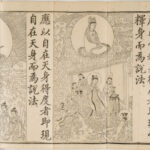 釋身而為說法
應以自在天身得度者即現
自在天身而為說法